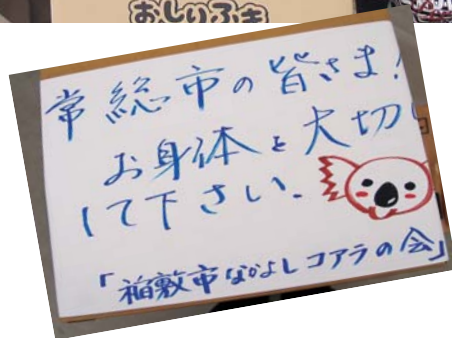 おしりふき
常総市の皆さま!
お身体を大切に
して下さい。
「稲敷市なかよしコアラの会」